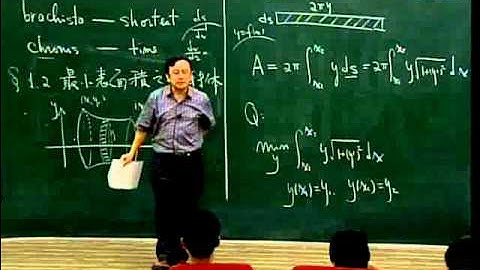 brachisto — shortest
chrons — time
ds/dt
§1.2 最小表面積
y
(x₁,y₁)
y=f(x)
ds
2πy
A = 2π∫_{x₁}^{x₂} y ds = 2π∫_{x₁}^{x₂} y√(1+(y')²) dx
Q:
min_y ∫_{x₁}^{x₂} y√(1+(y')²) dx
y(x₁)=y₁, y(x₂)=y₂